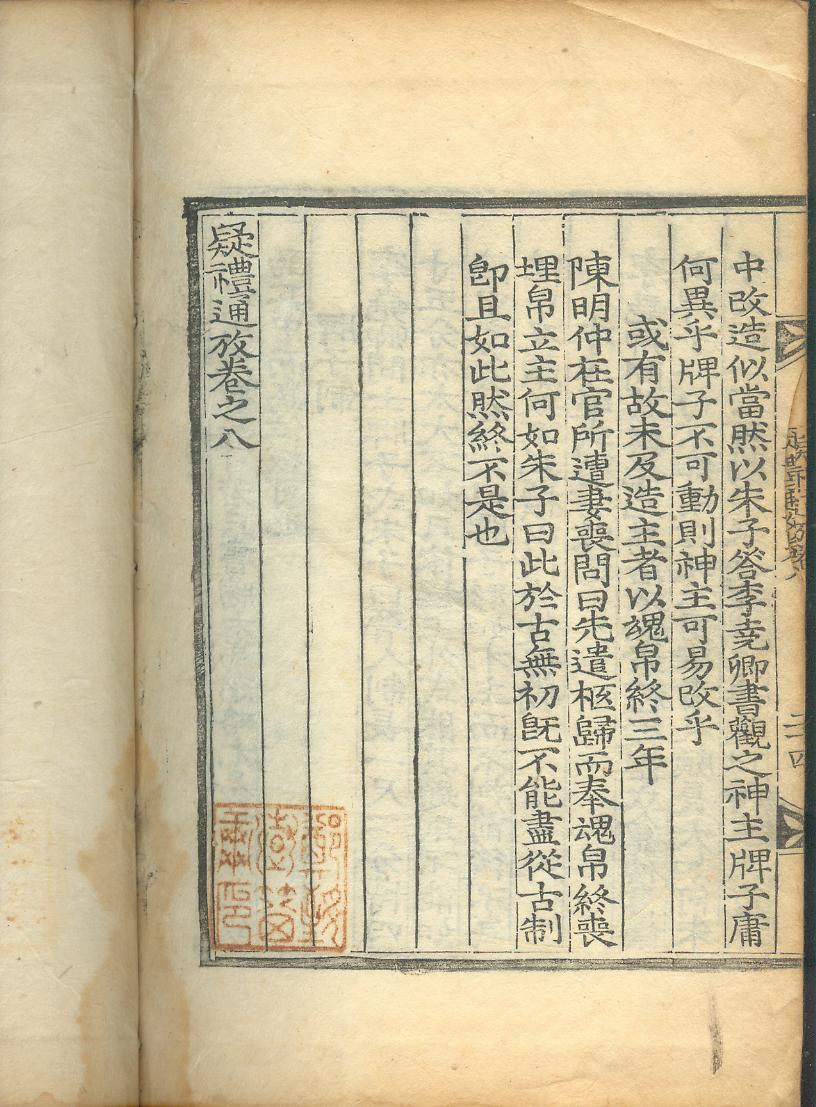 中改造似當然以朱子答李堯卿書觀之神主牌子庸
何異乎牌子不可動則神主可易改乎
或有故未及造主者以魂帛終三年
陳明仲在官所遭妻喪問曰先遣柩歸而奉魂帛終喪
埋帛立主何如朱子曰此於古無初旣不能盡從古制
卽且如此然終不是也
疑禮通攷卷之八
二十四